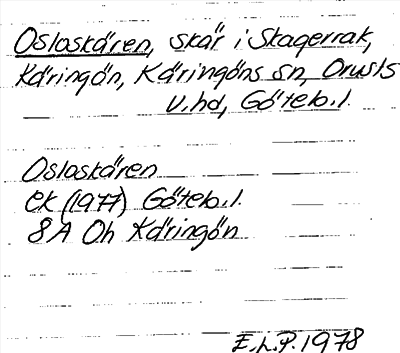 Osloskären, skär i Skagerrak,
Käringön, Käringöns sn, Orusts
v.hd, Göteb.l.
Osloskären
ek (1977) Göteb.l.
8A Oh Käringön
E.L.P. 1978